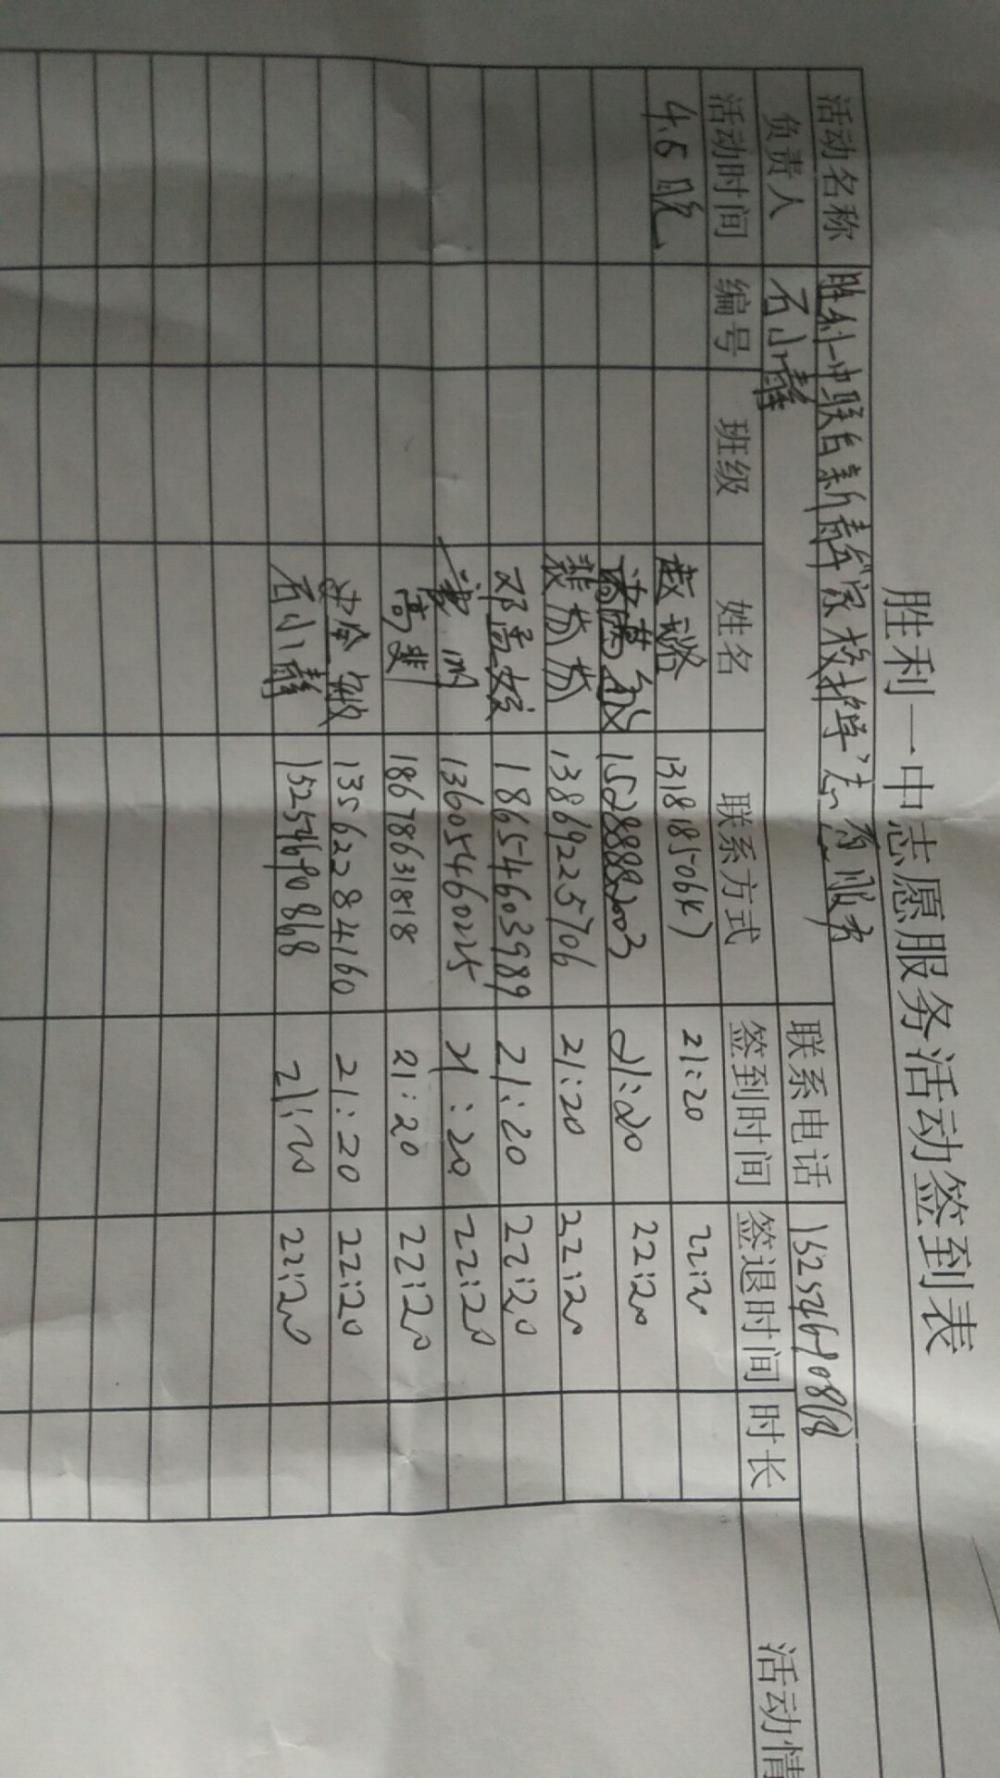 胜利一中志愿服务活动签到表
活动名称 胜利一中联合新春年家校护学志愿服务
负责人 石小静 联系电话 15254690868
活动时间 编号 班级 姓名 联系方式 签到时间 签退时间 时长 活动情
4.5晚 21:20 22:20
15288882003 21:20 22:20
裴苏苏 13869225706 21:20 22:20
邓孟姣 18654603989 21:20 22:20
13605460225 21:20 22:20
高斐 18678631818 21:20 22:20
13562284160 21:20 22:20
石小静 15254690868 21:20 22:20